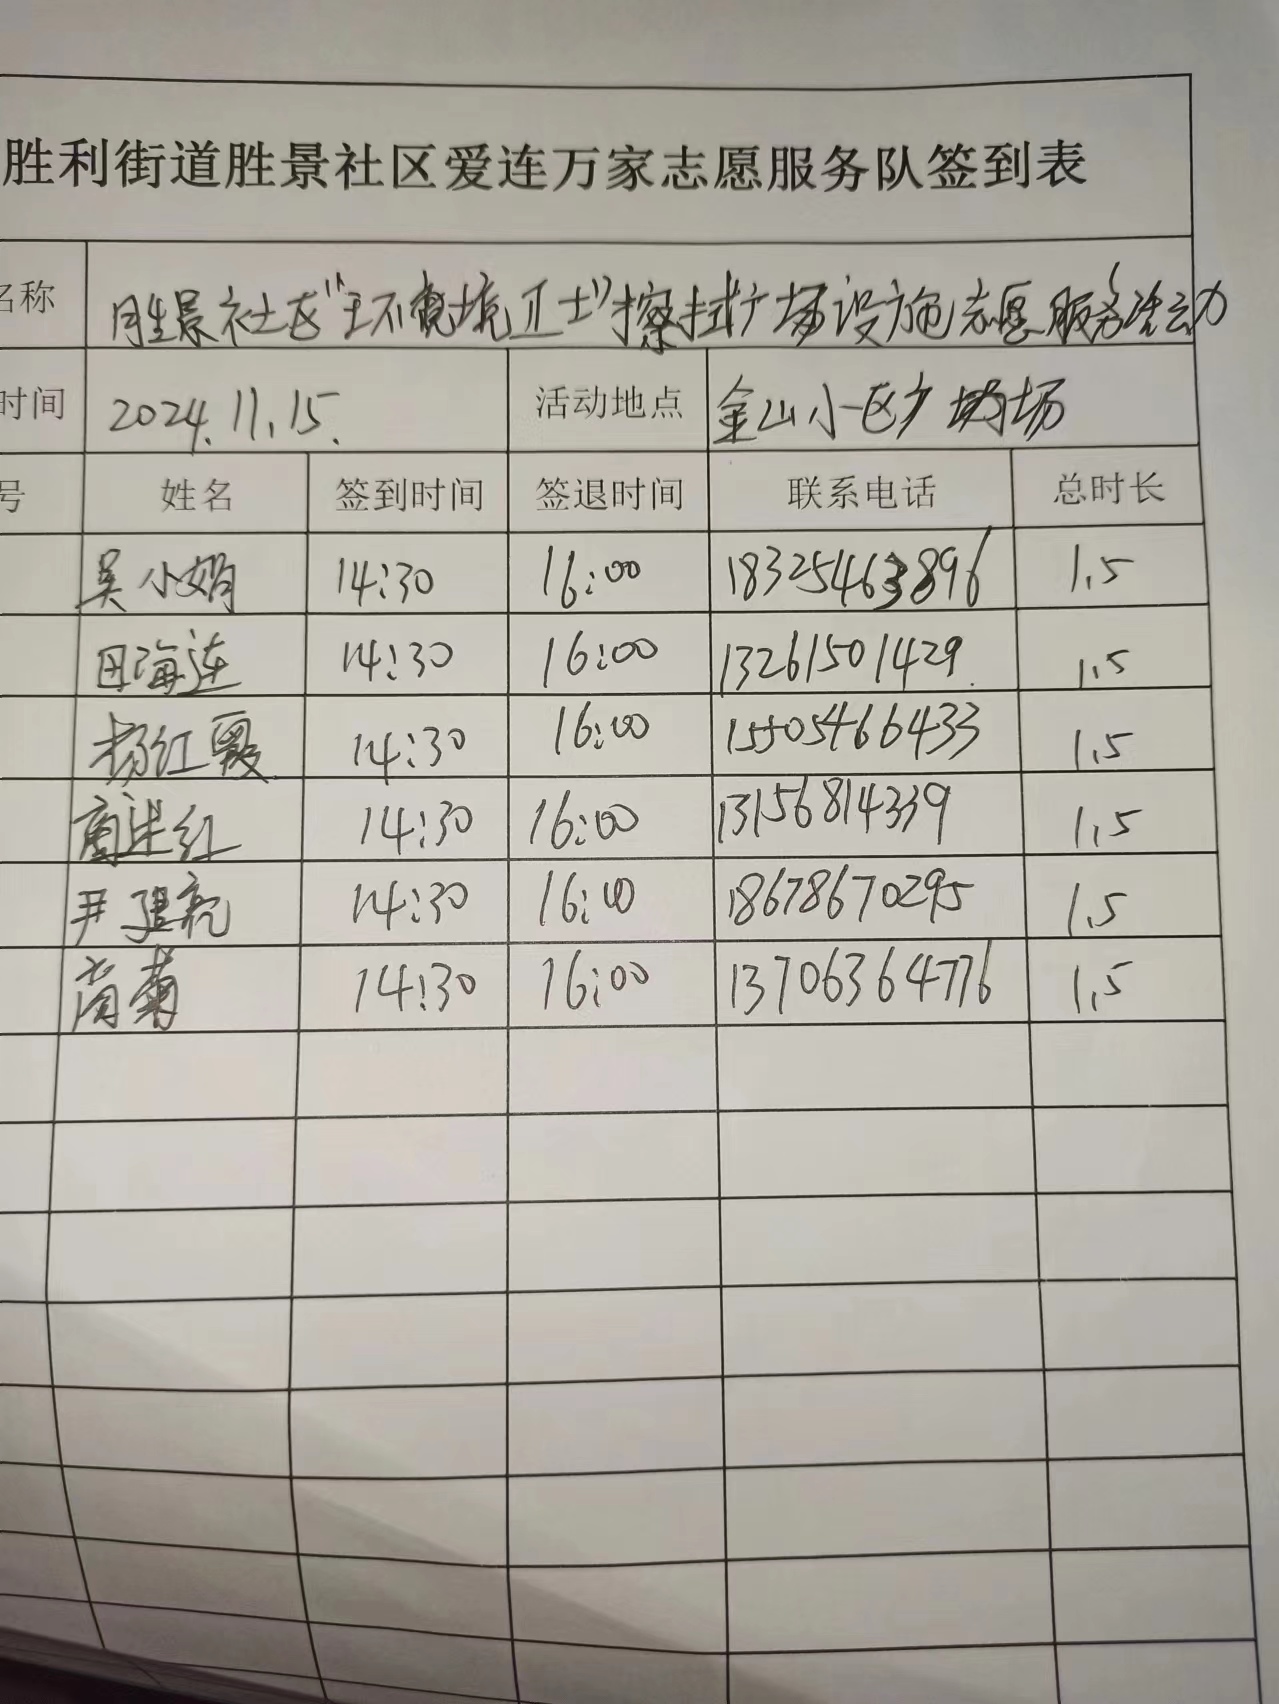 胜利街道胜景社区爱连万家志愿服务队签到表
名称 胜景社区“环境卫士”擦拭广场设施志愿服务活动
时间 2024.11.15. 活动地点 金山小区广场
号 姓名 签到时间 签退时间 联系电话 总时长
吴小娟 14:30 16:00 18325463896 1.5
田海连 14:30 16:00 13261501429 1.5
杨红霞 14:30 16:00 15505466433 1.5
14:30 16:00 13156814339 1.5
尹建亮 14:30 16:00 18678670295 1.5
菊 14:30 16:00 13706364776 1.5